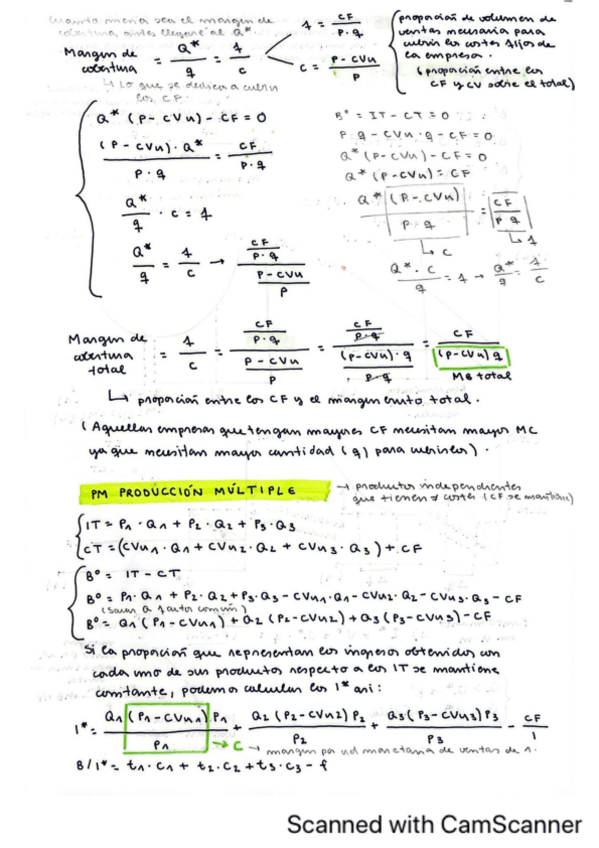 cuanto menor sea el margen de
cobertura, antes llegaré al Q*
Margen de cobertura = Q*/q = 1/c
1 = CF / P·q
c = P-CVu / P
(proporción de volumen de
ventas necesaria para
cubrir los costes fijos de
la empresa.
(proporción entre los
CF y CV sobre el total)
↳ Lo que se dedica a cubrir
los CF.
Q* (P-CVu) - CF = 0
(P-CVu)·Q* / P·q = CF / P·q
Q*/q · c = 1
Q*/q = 1/c → (CF / P·q) / (P-CVu / P)
Bº = IT - CT = 0
P·q - CVu·q - CF = 0
Q* (P-CVu) - CF = 0
Q* (P-CVu) = CF
Q* (P-CVu) / P·q = CF / P·q
↳ c
↳ 1
Q*·c / q = 1 → Q*/q = 1/c
Margen de cobertura total = 1/c = (CF / P·q) / (P-CVu / P) = (CF / P·q) / ((P-CVu)·q / P·q) = CF / (P-CVu) q
MB total
↳ proporción entre los CF y el margen bruto total.
(Aquellas empresas que tengan mayores CF necesitan mayor MC
ya que necesitan mayor cantidad (q) para cubrirlos).
PM PRODUCCIÓN MÚLTIPLE → productos independientes
que tienen ≠ costes (CF se mantiene)
IT = P1·Q1 + P2·Q2 + P3·Q3
CT = (CVu1·Q1 + CVu2·Q2 + CVu3·Q3) + CF
Bº = IT - CT
Bº = P1·Q1 + P2·Q2 + P3·Q3 - CVu1·Q1 - CVu2·Q2 - CVu3·Q3 - CF
(sacar Q factor común)
Bº = Q1 (P1-CVu1) + Q2 (P2-CVu2) + Q3 (P3-CVu3) - CF
Si la proporción que representan los ingresos obtenidos con
cada uno de sus productos respecto a los IT se mantiene
constante, podemos calcular los I* así:
I* = Q1 (P1-CVu1) P1 / P1 + Q2 (P2-CVu2) P2 / P2 + Q3 (P3-CVu3) P3 / P3 - CF / I
→ c → margen por ud monetaria de ventas de 1.
B/I* = t1·c1 + t2·c2 + t3·c3 - f
Scanned with CamScanner